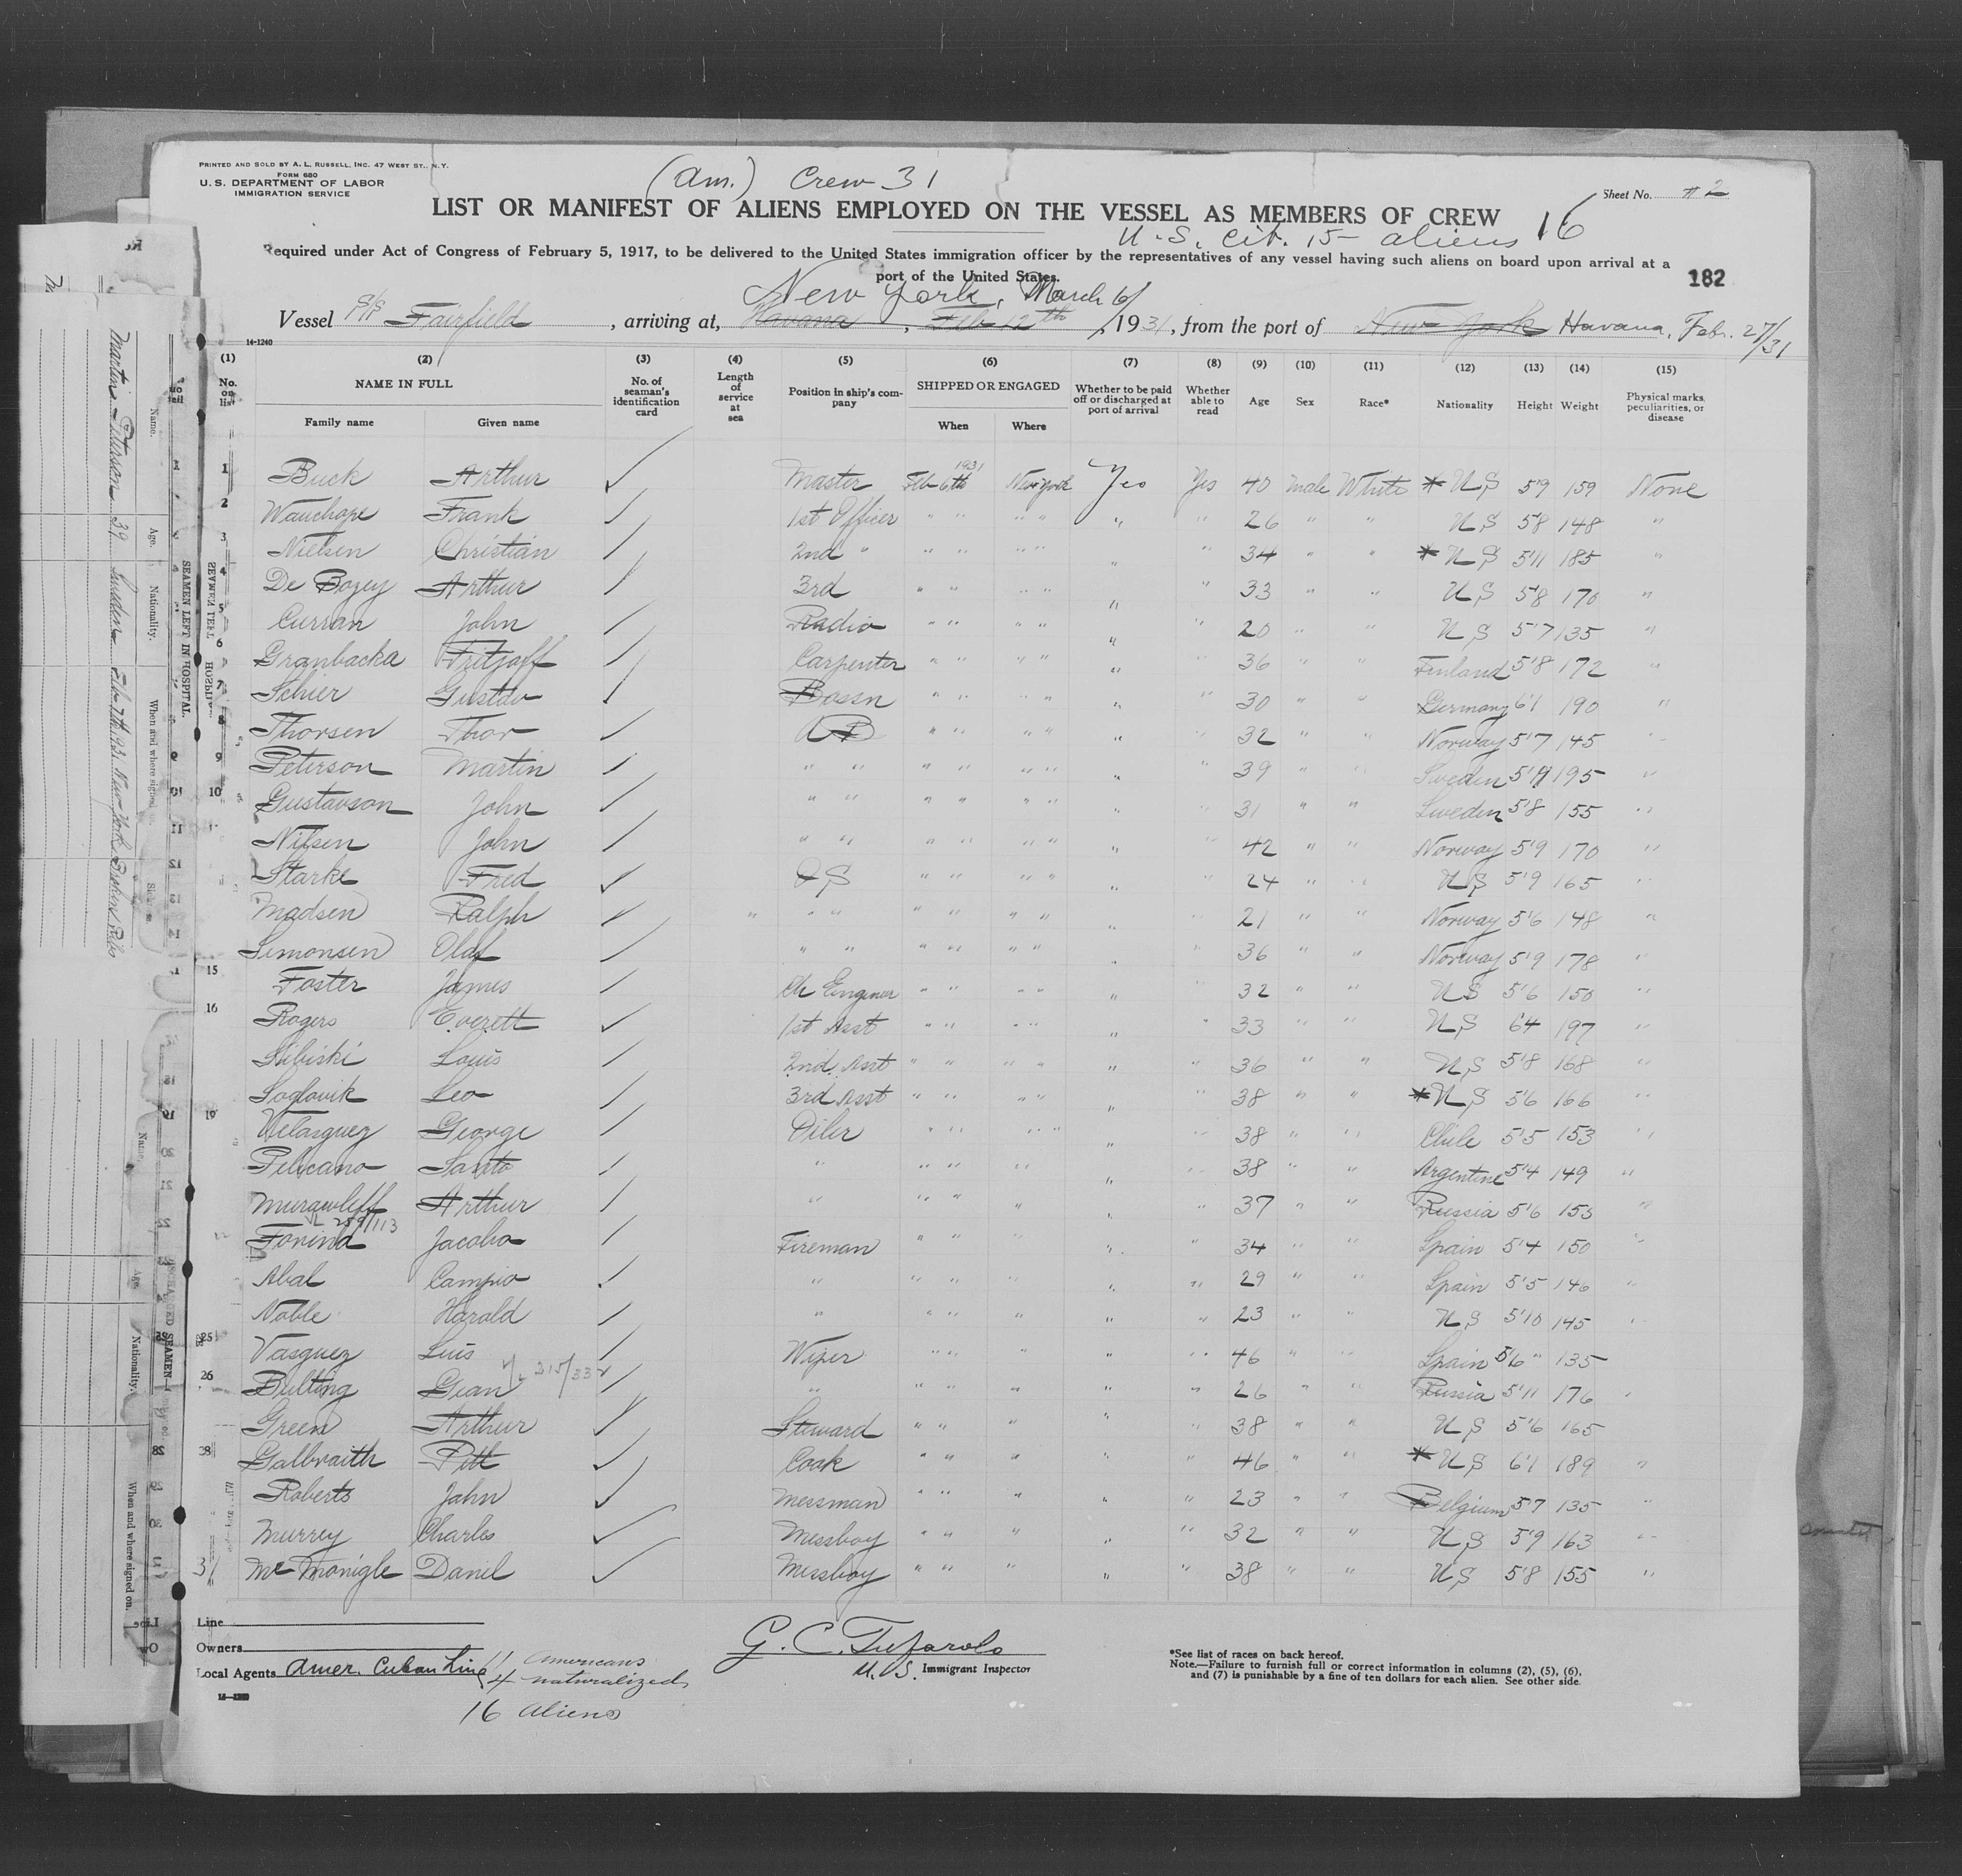 PRINTED AND SOLD BY A. L. RUSSELL, INC. 47 WEST ST., N.Y.
FORM 680
U. S. DEPARTMENT OF LABOR
IMMIGRATION SERVICE
(Am.) Crew 31
Sheet No. #2
LIST OR MANIFEST OF ALIENS EMPLOYED ON THE VESSEL AS MEMBERS OF CREW
U.S. Cit. 15 - aliens 16
Required under Act of Congress of February 5, 1917, to be delivered to the United States immigration officer by the representatives of any vessel having such aliens on board upon arrival at a
port of the United States.
182
New York, March 6/
Vessel S/S Fairfield, arriving at, Havana, Feb 12th, 1931, from the port of New York Havana, Febr. 27/31
14-1240
(1) (2) (3) (4) (5) (6) (7) (8) (9) (10) (11) (12) (13) (14) (15)
No. on list NAME IN FULL Family name Given name No. of seaman's identification card Length of service at sea Position in ship's company SHIPPED OR ENGAGED When Where Whether to be paid off or discharged at port of arrival Whether able to read Age Sex Race* Nationality Height Weight Physical marks, peculiarities, or disease
1 Buck Arthur ✓ Master Feb 6th 1931 New York Yes Yes 40 Male White * U S 5'9 159 None
2 Wauchope Frank 1st Officer " " " " " " 26 " " U S 5'8 148 "
3 Nielsen Christian 2nd " " " " " " " 34 " " * U S 5'11 185 "
4 De Bozey Arthur 3rd " " " " " " 33 " " U S 5'8 170 "
5 Curran John Radio " " " " " " 20 " " U S 5'7 135 "
6 Granbacka Fritjoff Carpenter " " " " " " 36 " " Finland 5'8 172 "
7 Schier Gustav Bossn " " " " " " 30 " " Germany 6'1 190 "
8 Thorsen Thor AB " " " " " " 32 " " Norway 5'7 145 "
9 Peterson Martin " " " " " " " " 39 " " Sweden 195 "
10 Gustavson John " " " " " " " " 31 " " Sweden 5'8 155 "
11 Nilsen John " " " " " " " " 42 " " Norway 5'9 170 "
Starke Fred O S " " " " " " 24 " " U S 5'9 165 "
Madsen Ralph " " " " " " " " 21 " " Norway 5'6 148 "
Simonsen Olaf " " " " " " " " 36 " " Norway 5'9 178 "
15 Foster James Ch Enginer " " " " " " 32 " " U S 5'6 150 "
16 Rogers Everett 1st Asst " " " " " " 33 " " U S 6'4 197 "
Sibiski Louis 2nd Asst " " " " " " 36 " " U S 5'8 168 "
Soglovik Leo 3rd Asst " " " " " " 38 " " * U S 5'6 166 "
19 Velasquez George Oiler " " " " " " 38 " " Chile 5'5 153 "
Pelicano Santo " " " " " " " 38 " " Argentine 5'4 149 "
Murawleff Arthur " " " " " " 37 " " Russia 5'6 153 "
259/113
Jacobo Fireman " " " " " 34 " " Spain 5'4 150 "
Abal Campio " " " " " " 29 " " Spain 5'5 146 "
Noble Harald " " " " " " 23 " " U S 5'10 145 "
25 Vasquez Luis Wiper " " " " " 46 " " Spain 5'6" 135
315/334
26 Bulting Gean " " " " " " 26 " " Russia 5'11 176 "
Green Arthur Steward " " " " " 38 " " U S 5'6 165
28 Galbraith Pitt Cook " " " " " 46 " " * U S 6'1 189 "
Roberts John Messman " " " " " 23 " " Belgium 5'7 135 "
Murrey Charles Messboy " " " " " 32 " " U S 5'9 163 "
31 Mc Monigle Daniel Messboy " " " " " 38 " " U S 5'8 155 "
Line
Owners
Local Agents Amer. Cuban Line
11 Americans
4 naturalized
16 Aliens
G. C. Tufarolo
U. S. Immigrant Inspector
*See list of races on back hereof.
Note.—Failure to furnish full or correct information in columns (2), (5), (6),
and (7) is punishable by a fine of ten dollars for each alien. See other side.
Name. Age. Nationality. When and where signed on.
Martin Peterson 39 Sweden Feb 7th 1931 New York Broken Ribs
SEAMEN LEFT IN HOSPITAL.
Name. Age. Nationality. When and where signed on.